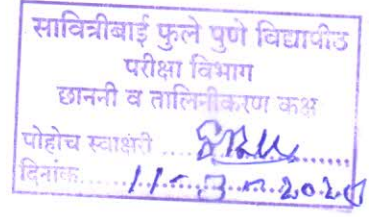 सावित्रीबाई फुले पुणे विद्यापीठ
परीक्षा विभाग
छाननी व तालिनीकरण कक्ष
पोहोच स्वाक्षरी ..............
दिनांक.....11-3-2020